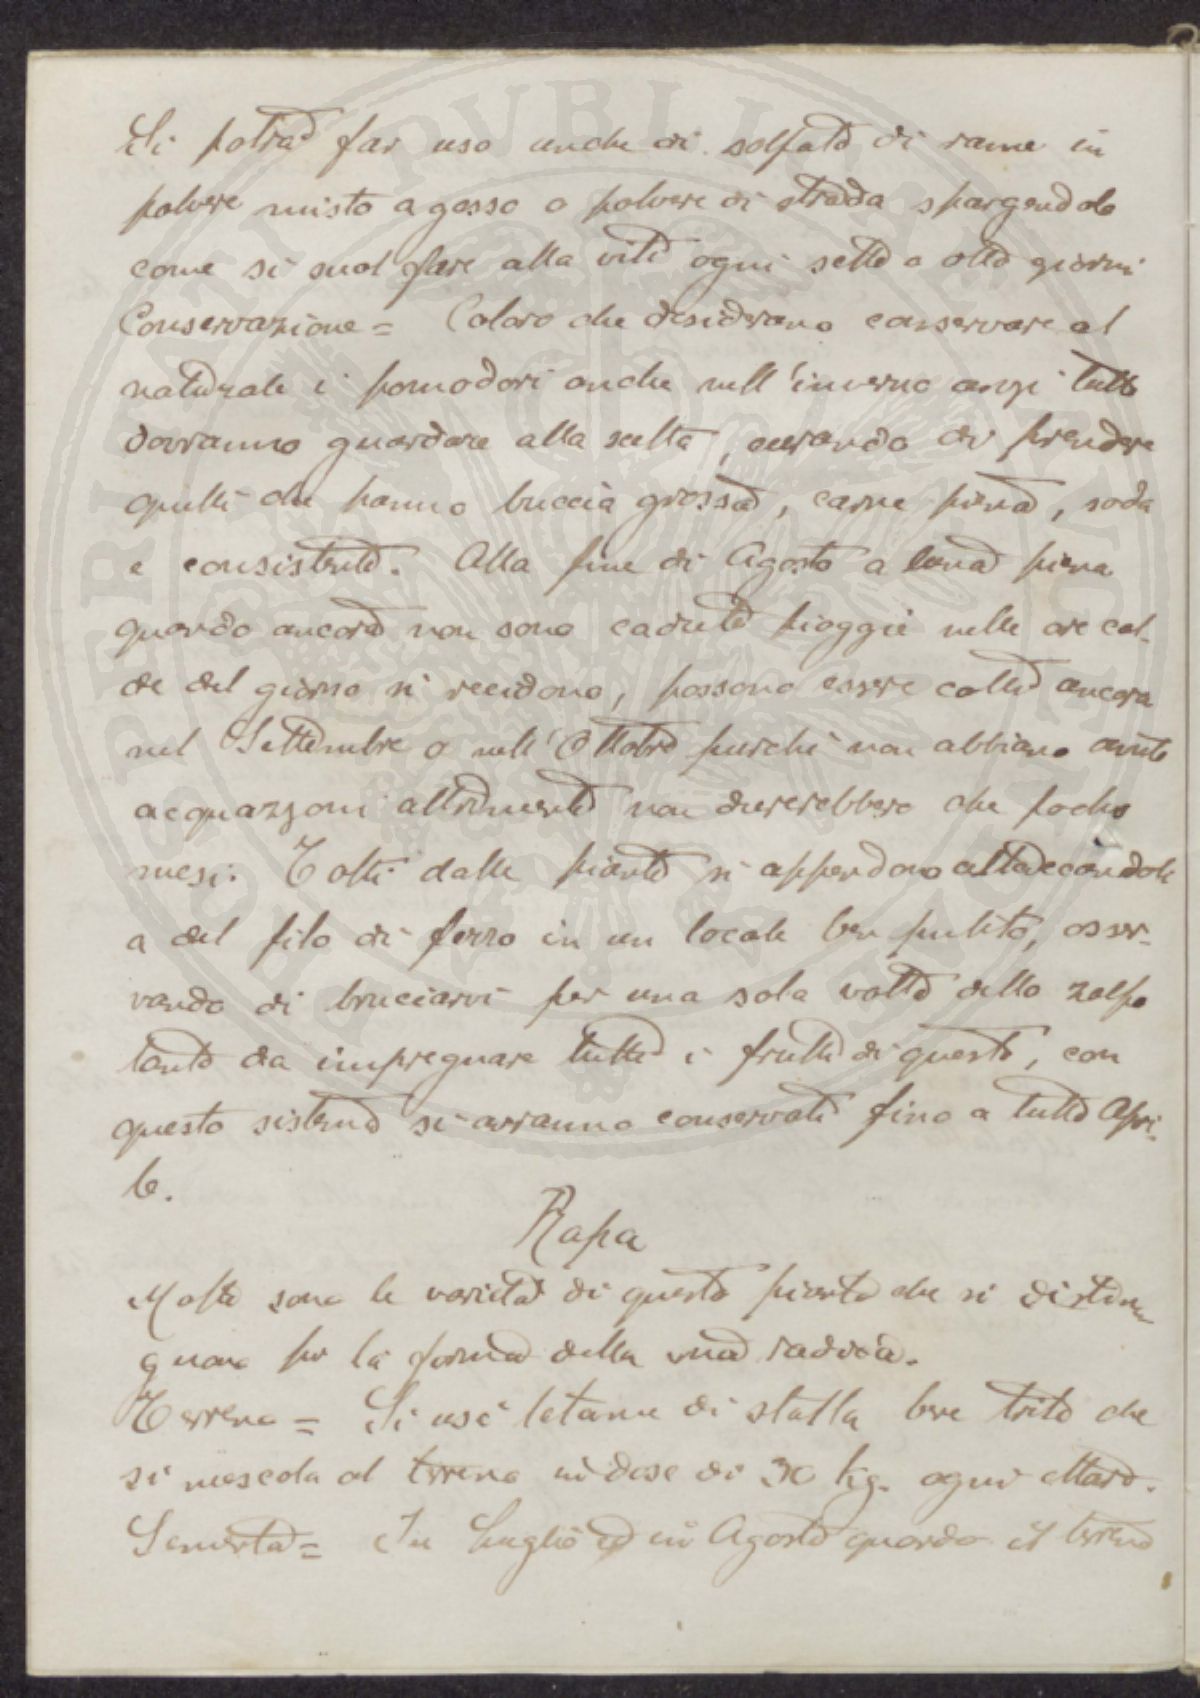 Si potrà far uso anche di solfato di rame in
polvere misto a gesso o polvere di strada spargendolo
come si suol fare alla vite ogni sette o otto giorni
Conservazione = Coloro che desiderano conservare al
naturale i pomodori anche nell'inverno anzi tutto
dovranno guardare alla scelta, curando di prendere
quelli che hanno buccia grossa, carne piena, soda
e consistente. Alla fine di Agosto a luna piena
quando ancora non sono cadute pioggie nelle ore cal-
de del giorno si recidono, possono essere colti ancora
nel Settembre o nell'Ottobre purchè non abbiano avuto
acquazzoni altrimenti non durerebbero che pochi
mesi. Tolti dalle piante si appendono attaccandole
a del filo di ferro in un locale ben pulito, osser-
vando di bruciarvi per una sola volta dello zolfo
tanto da impregnare tutti i frutti di questo, con
questo sistema si avranno conservati fino a tutto Apri-
le.
Rapa
Molte sono le varietà di questa pianta che si distin
guono per la forma della radice.
Terreno = Si usi letame di stalla bene trito che
si mescola al terreno in dose di 30 kg. ogni ettaro.
Semente = In Luglio ed in Agosto quando il terreno
PERIT PVBLIC